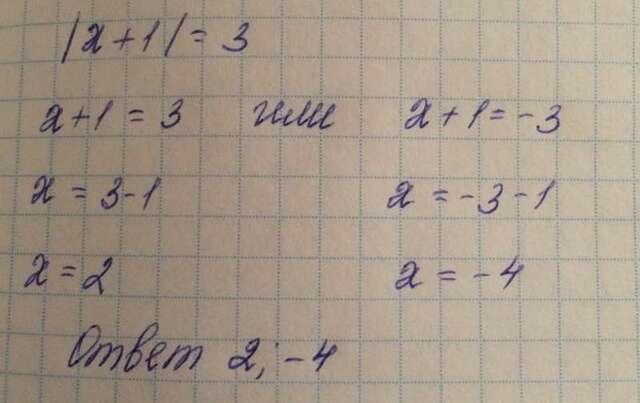 |x+1|= 3
x+1 = 3 или x+1=-3
x = 3-1 x = -3-1
x = 2 x = -4
Ответ 2; -4